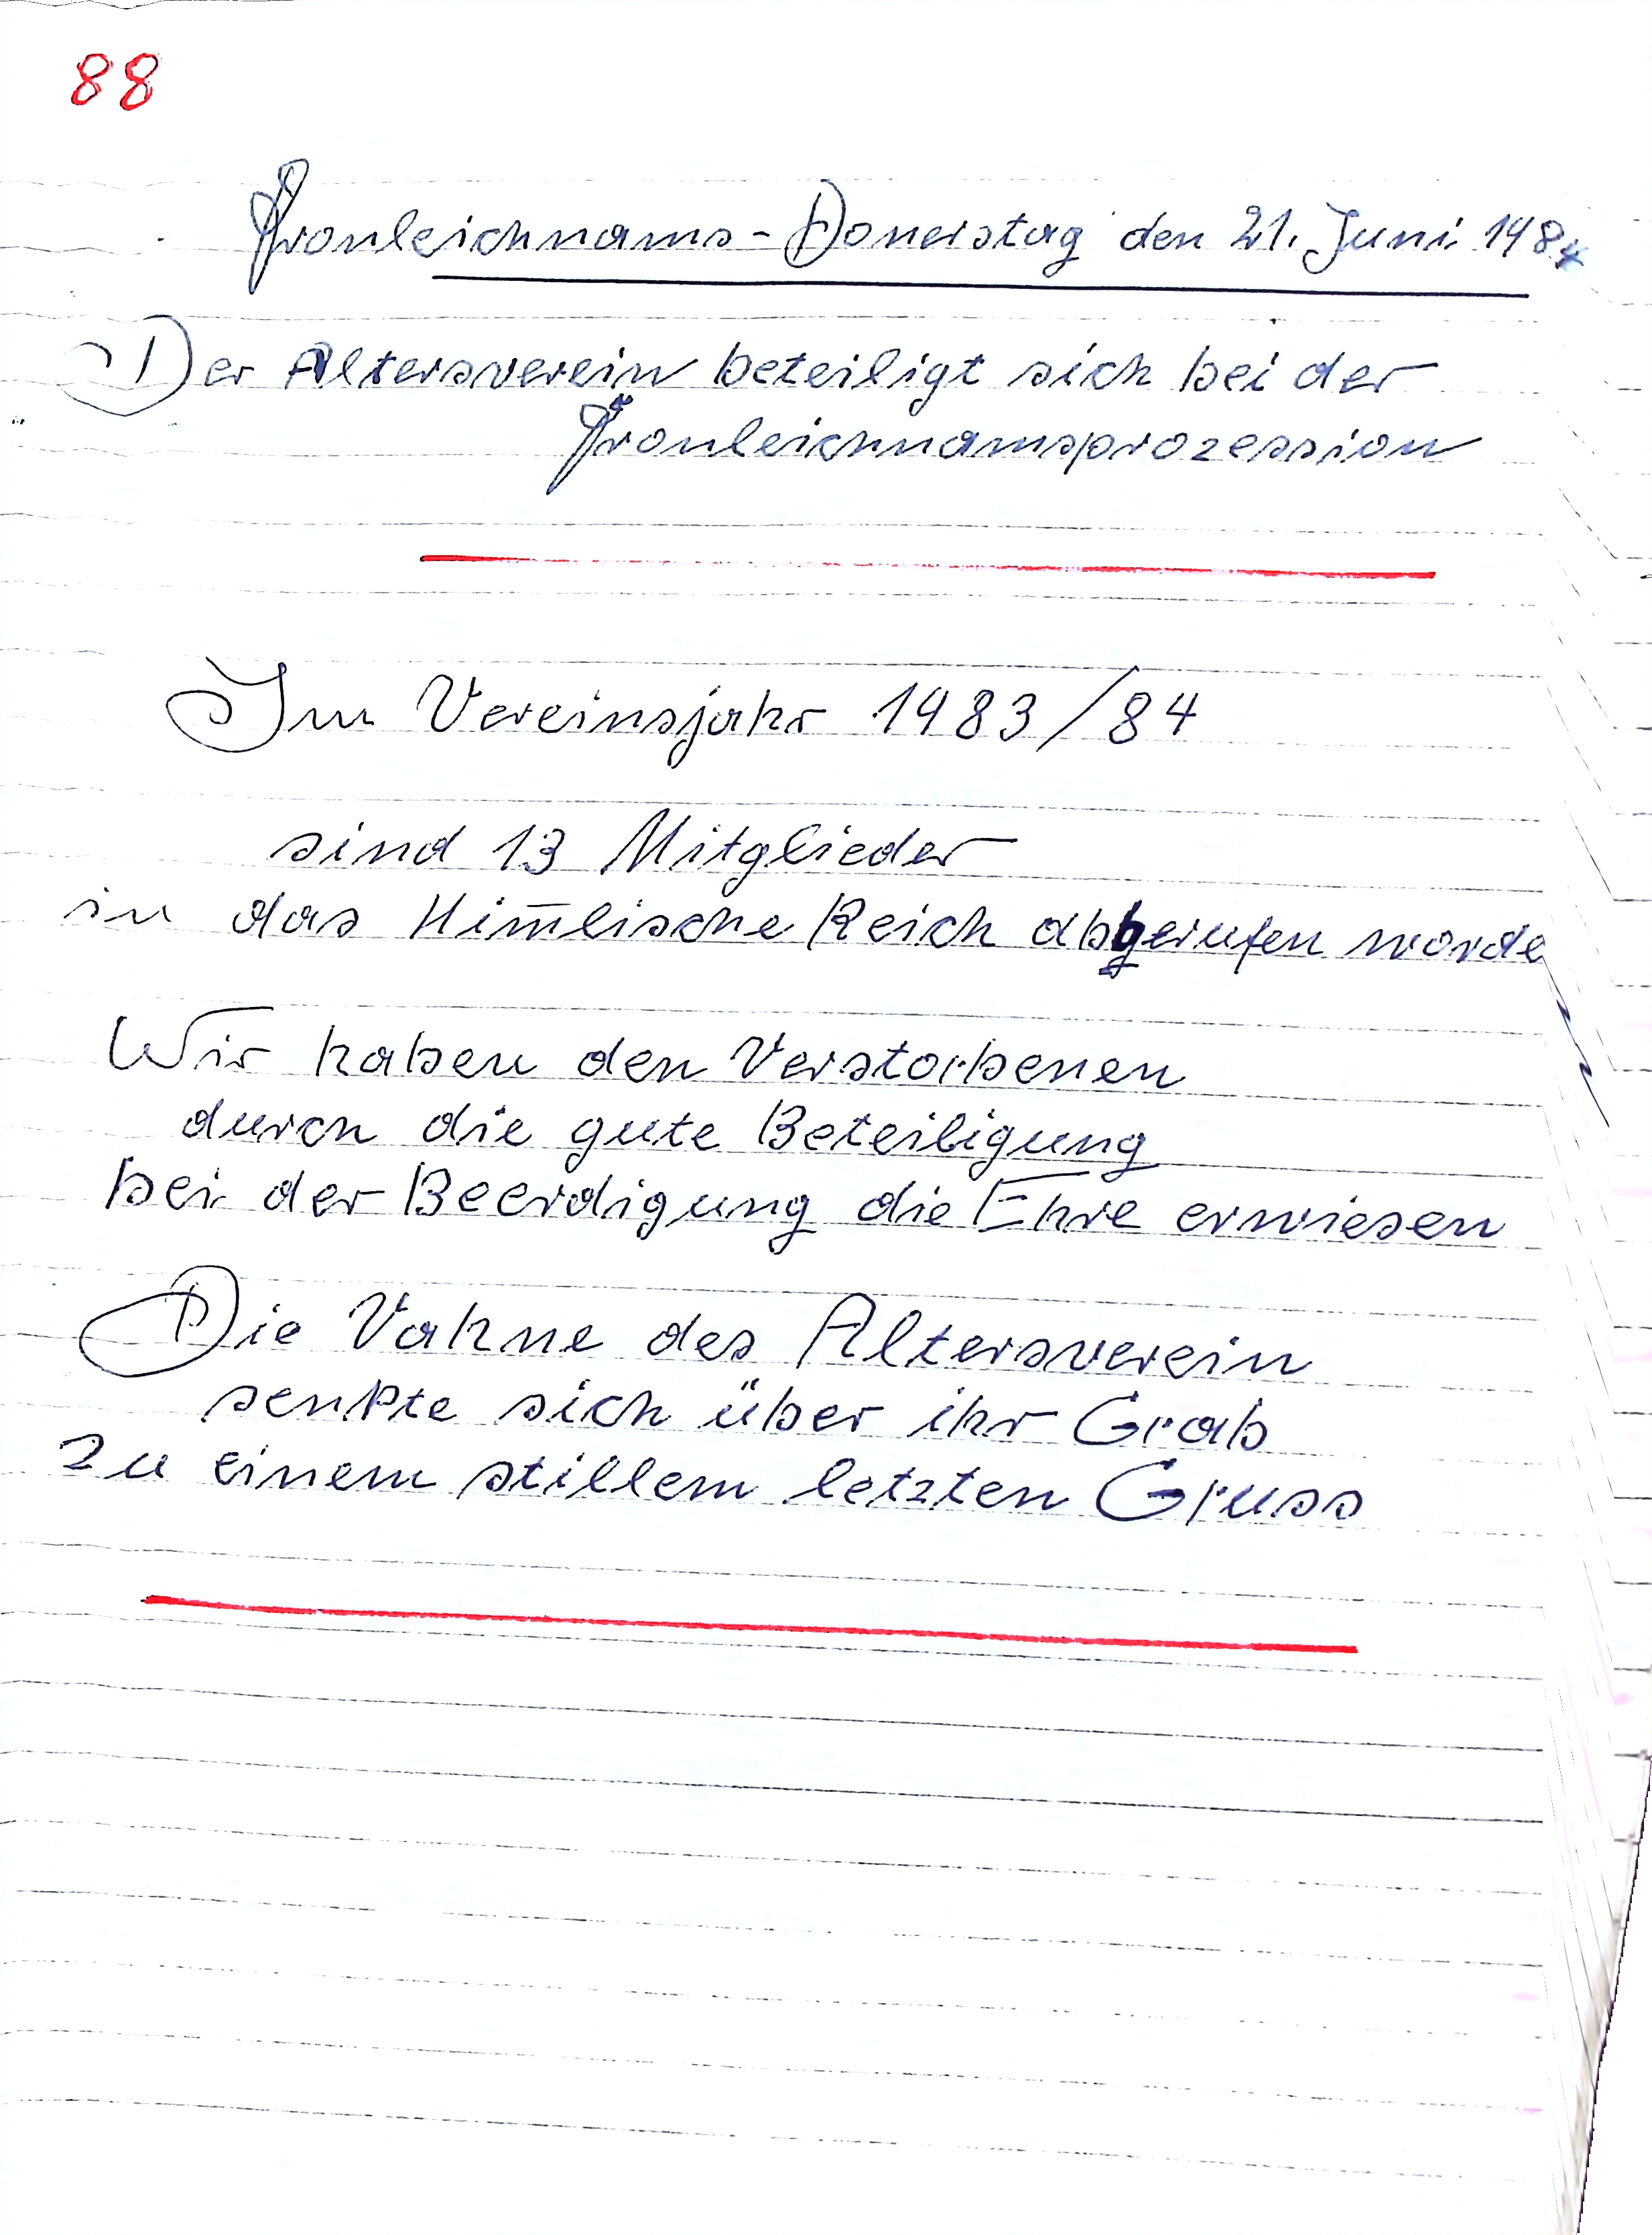 88
Fronleichnams-Donerstag den 21. Juni 1984
Der Altersverein beteiligt sich bei der
Fronleichnamsprozession
Im Vereinsjahr 1983/84
sind 13 Mitglieder
in das Him̅lische Reich abgerufen worden
Wir haben den Verstorbenen
durch die gute Beteiligung
bei der Beerdigung die Ehre erwiesen
Die Vahne des Altersverein
senkte sich über ihr Grab
zu einem stillem letzten Gruss